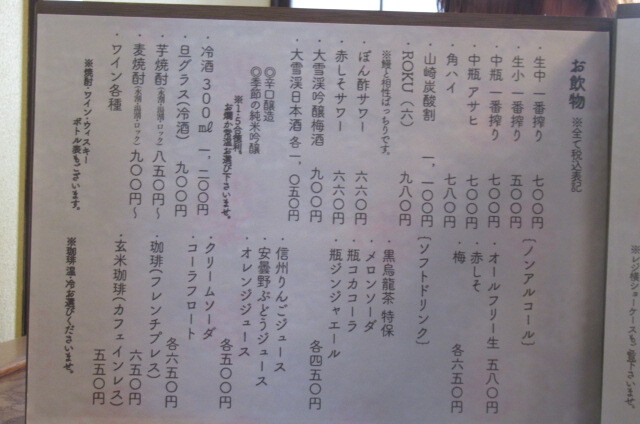 お飲物 ※全て税込表記
・生中 一番搾り 七〇〇円
・生小 一番搾り 五〇〇円
・中瓶 一番搾り 七〇〇円
・中瓶 アサヒ 七〇〇円
・角ハイ 七八〇円
・山崎炭酸割 一、一〇〇円
・ROKU（六） 九八〇円
※鰻と相性ばっちりです。
・ぽん酢サワー 六六〇円
・赤しそサワー 六六〇円
・大雪渓吟醸梅酒 九〇〇円
・大雪渓日本酒 各一、〇五〇円
◎辛口醸造
◎季節の純米吟醸
お燗か常温お選び下さいませ。
・冷酒 300ml 一、二〇〇円
・旦グラス（冷酒） 九〇〇円
・芋焼酎 八五〇円～
・麦焼酎 九〇〇円～
・ワイン各種
※焼酎・ワイン・ウィスキー
ボトル表もございます。
〔ノンアルコール〕
・オールフリー生 五八〇円
・赤しそ
・梅 各六五〇円
〔ソフトドリンク〕
・黒烏龍茶 特保
・メロンソーダ
・瓶コカコーラ
・瓶ジンジャエール 各四五〇円
・信州りんごジュース
・安曇野ぶどうジュース
・オレンジジュース 各五〇〇円
・クリームソーダ
・コーラフロート 各六五〇円
・珈琲（フレンチプレス） 六五〇円
・玄米珈琲（カフェインレス） 五五〇円
※珈琲 温・冷お選びくださいませ。